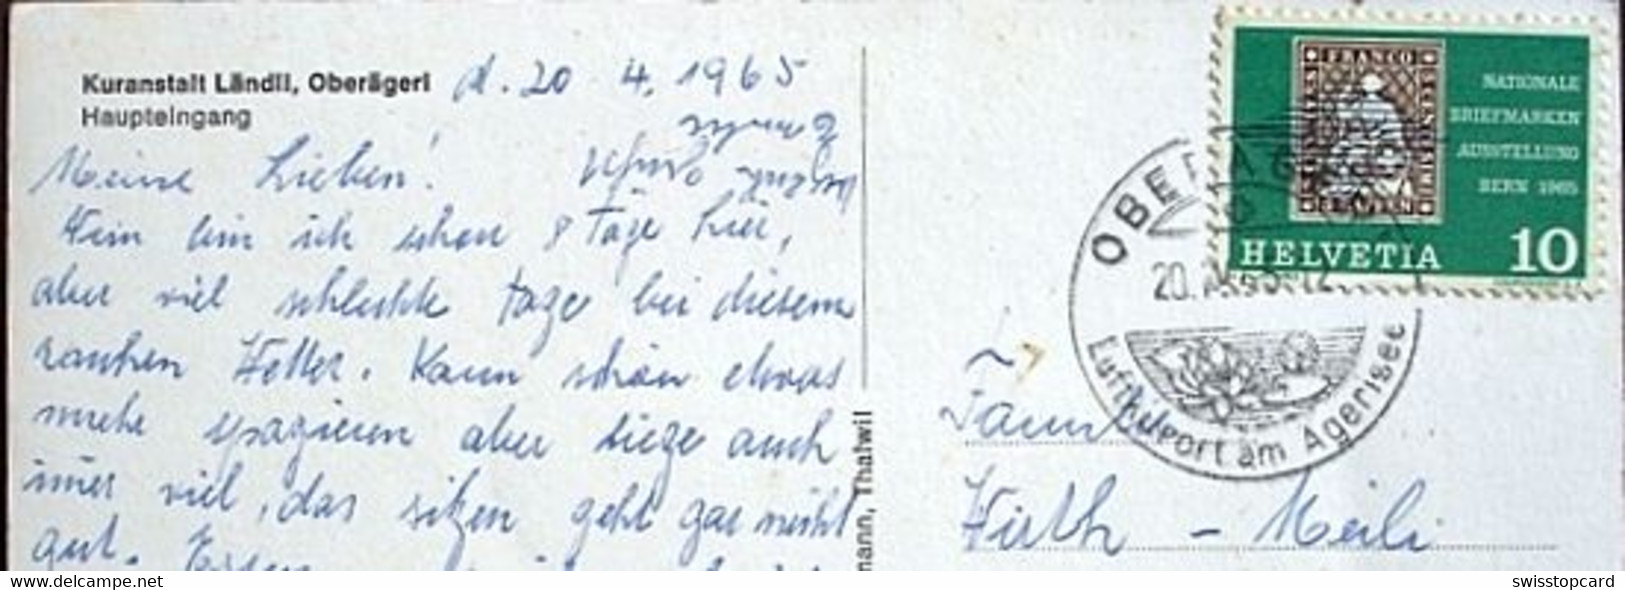 Kuranstalt Ländli, Oberägeri
Haupteingang
d. 20 4. 1965
Meine Lieben!
bin ich schon 8 Tage hier,
aber viel schlechte Tage bei diesem
rauhen Wetter. Kann schon etwas
mehr spazieren aber liege auch
viel, das sitzen geht gar nicht
gut. Essen
NATIONALE
BRIEFMARKEN
AUSSTELLUNG
BERN 1965
FRANCO
HELVETIA 10
Luftkurort am Ägerisee
Wirth - Meili
mann, Thalwil
swisstopcard